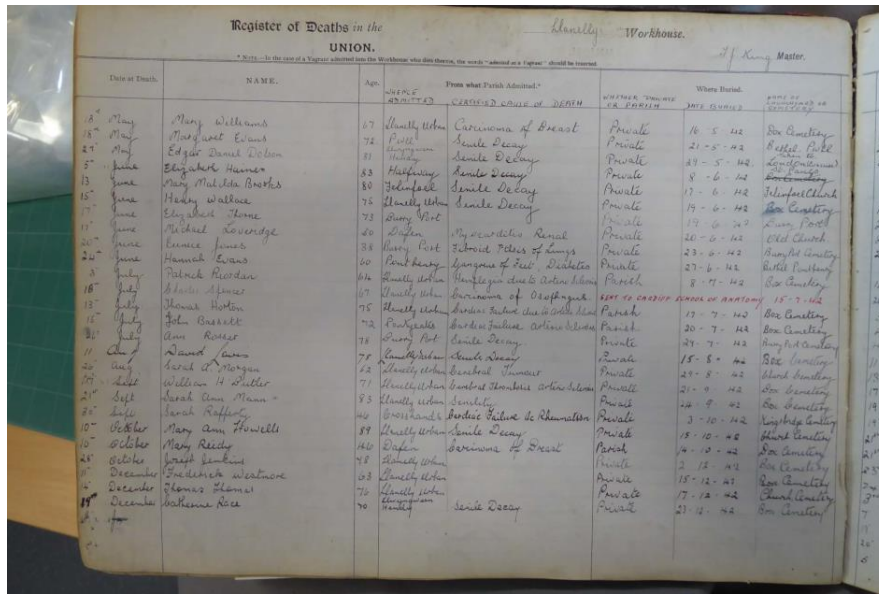 Register of Deaths in the Llanelly Workhouse.
UNION. T J King Master.
* NOTE.—In the case of a Vagrant admitted into the Workhouse who dies therein, the words "admitted as a Vagrant" should be inserted.
Date of Death. NAME. Age. From what Parish Admitted.* Where Buried.
WHENCE ADMITTED CERTIFIED CAUSE OF DEATH WHETHER PRIVATE OR PARISH DATE BURIED NAME OF CEMETERY
13 May Mary Williams 67 Llanelly Urban Carcinoma of Breast Private 16-5-42 Box Cemetery
18 May Margaret Evans 72 Pwll Senile Decay Private 21-5-42 Bethel Pwll
27 May Edgar Daniel Senile Decay Private 29-5-42
5 June Elizabeth Haines 83 Halfway Senile Decay Private 8-6-42
13 June Mary Matilda Brooks 80 Felinfoel Senile Decay Private 17-6-42 Felinfoel Church
15 June Henry Wallace 75 Llanelly Urban Senile Decay Private 19-6-42 Box Cemetery
17 June Elizabeth Thorne 73 Burry Port Private 19-6-42 Burry Port
June Michael Loveridge 80 Dafen Myocarditis Renal Private 20-6-42 Old Church
20 June Eunice Jones 38 Burry Port Fibroid of Lungs Private 23-6-42 Burry Port Cemetery
24 June Hannah Evans 60 Pont Henry Gangrene of Feet, Diabetes Private 27-6-42 Bethel
5 July Patrick Riordan 64 Llanelly Urban Hemiplegia due to Arterio Sclerosis Parish 8-7-42 Box Cemetery
July Charles Spencer 67 Llanelly Urban Carcinoma of Oesophagus SENT TO CARDIFF SCHOOL OF ANATOMY 15-7-42
13 July Thomas Hotton 75 Llanelly Urban Cardiac Failure due to Arterio Parish 17-7-42 Box Cemetery
15 July John Baskett 72 Pontyeats Cardiac Failure Arterio Sclerosis Parish 20-7-42 Box Cemetery
July Ann Rosser 78 Burry Port Senile Decay Private 29-7-42 Burry Port Cemetery
11 Aug David 78 Llanelly Urban Senile Decay Private 15-8-42 Box Cemetery
26 Aug Sarah A. Morgan 62 Llanelly Urban Cerebral Tumour Private 29-8-42 Church Cemetery
Sept William H Butler 71 Llanelly Urban Cerebral Thrombosis Arterio Sclerosis Private 21-9-42 Box Cemetery
21 Sept Sarah Ann Mann 83 Llanelly Urban Senility Private 24-9-42 Box Cemetery
30 Sept Sarah Rafferty 46 Crosshands Cardiac Failure Rheumatism Private 3-10-42 Cemetery
10 October Mary Ann Howells 89 Llanelly Urban Senile Decay Private 15-10-42 Church Cemetery
10 October Mary Reidy Dafen Carcinoma of Breast Parish 14-10-42 Box Cemetery
28 October Joseph Jenkins 48 Llanelly Urban Private 2-12-42 Box Cemetery
December Frederick Westmore 63 Llanelly Urban Private 15-12-42 Box Cemetery
December Thomas Thomas 76 Llanelly Urban Private 17-12-42 Church Cemetery
19 December Catherine Race 70 Senile Decay Private 23-12-42 Box Cemetery